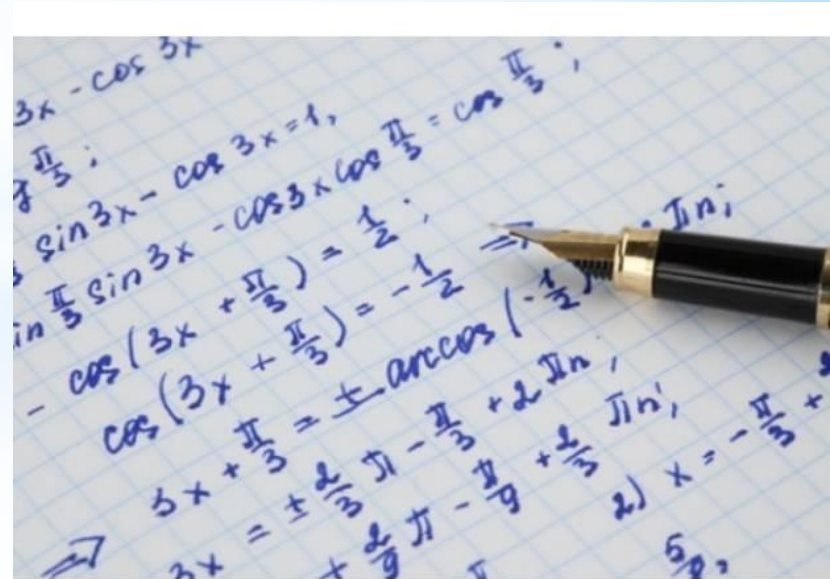 3x - cos 3x
π/3 ;
sin 3x - cos 3x = 1,
sin π/3 sin 3x - cos 3x cos π/3 = cos π/3 ;
- cos(3x + π/3) = 1/2 ;
cos(3x + π/3) = -1/2 ⇒
3x + π/3 = ± arccos(-1/2) πn;
⇒ 3x = ± 2/3 π - π/3 + 2πn,
± 2/9 π - π/9 + 2/3 πn;
2) x = -π/3 +